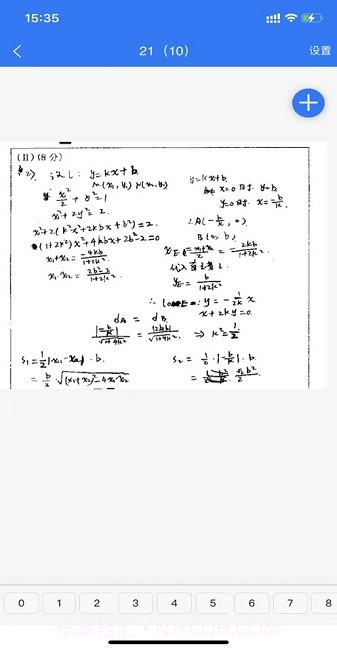 15:35
21（10）
设置
(II) (8 分)
(2) 设 l: y=kx+b
M(x₁, y₁) N(x₂, y₂)
x²/2 + y² = 1
x²+2y²=2.
x²+2(k²x²+2kbx+b²)=2.
(1+2k²)x²+4kbx+2b²-2=0
x₁+x₂ = -4kb/1+2k²
x₁·x₂ = 2b²-2/1+2k²
y=kx+b.
x=0 时 y=b.
y=0 时 x=-b/k.
∴A(-b/k, 0)
B(0, b)
x_E = x₁+x₂/2 = -2kb/1+2k²
代入直线 l.
y_E = b/1+2k²
∴ l_OE: y=-1/2k x
x+2ky=0.
d_A = d_B
|-b/k|/√1+4k² = |2bk|/√1+4k² ⇒ k²=1/2
S₁=1/2|x₁-x₂|·b.
= b/2·√(x₁+x₂)²-4x₁x₂
S₂ = 1/2·|-b/k|·b.
= √2b²/2
0 1 2 3 4 5 6 7 8